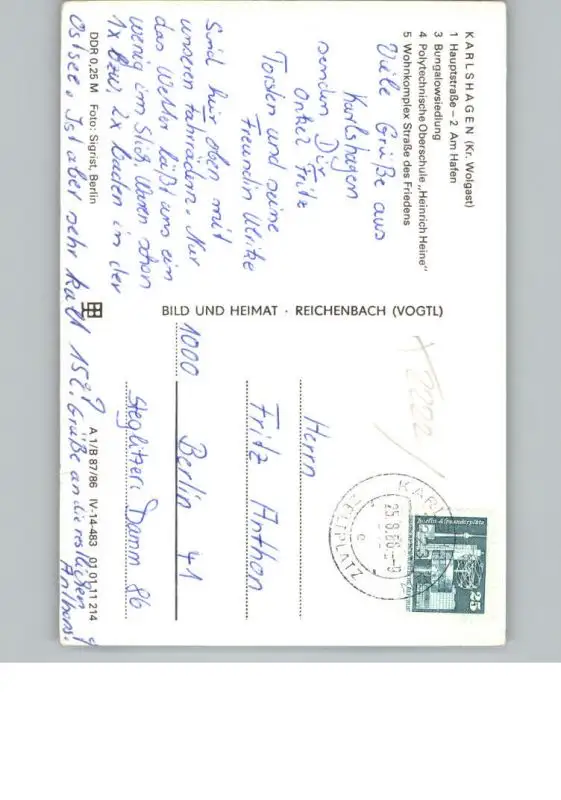 KARLSHAGEN (Kr. Wolgast)
1 Hauptstraße – 2 Am Hafen
3 Bungalowsiedlung
4 Polytechnische Oberschule „Heinrich Heine"
5 Wohnkomplex Straße des Friedens
Viele Grüße aus
Karlshagen
senden Dir
Onkel Fritz
Torsten und seine
Freundin Ulrike
Sind hier oben mit
unseren Fahrrädern. Nur
das Wetter läßt uns ein
wenig im Stich. Waren schon
1x bzw. 2x baden in der
Ostsee. Ist aber sehr kalt 15
Grüße an die restlichen
Anthons!
DDR 0,25 M Foto: Sigrist, Berlin
A 1/B 87/86 IV-14-483 01 01 11 214
BILD UND HEIMAT · REICHENBACH (VOGTL)
Herrn
Fritz Anthon
1000 Berlin 41
Steglitzer Damm 86
Berlin-Alexanderplatz
25
ZELTPLATZ